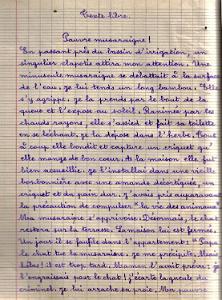 Texte libre.
Pauvre musaraigne !
En passant près du bassin d'irrigation, un
singulier clapotis attira mon attention. Une
minuscule musaraigne se débattait à la surface
de l'eau. Je lui tends un long bambou. Elle
s'y agrippe. Je la prends par le bout de la
queue et l'expose au soleil. Ranimée par les
chauds rayons, elle s'assied et fait sa toilette
en se léchant. Je la dépose dans l'herbe. Tout
à coup, elle bondit et capture un criquet qu'
elle mange de bon cœur. A la maison elle fut
bien accueillie. Je l'installai dans une vieille
bonbonnière avec une armande
criquet et du pain dur. J'avais pris auparavant
la précaution de compulser "la vie des animaux"
Ma musaraigne s'apprivoise. Désormais, le chat
restera sur la terrasse. La maison lui est fermée.
Un jour il se faufile dans l'appartement :
le chat tue la musaraigne. Je me précipite. Mais
hélas ! il est trop tard.
le chat ! J'écarte la gueule du
criminel. Je lui arrache sa proie. Mon pauvre